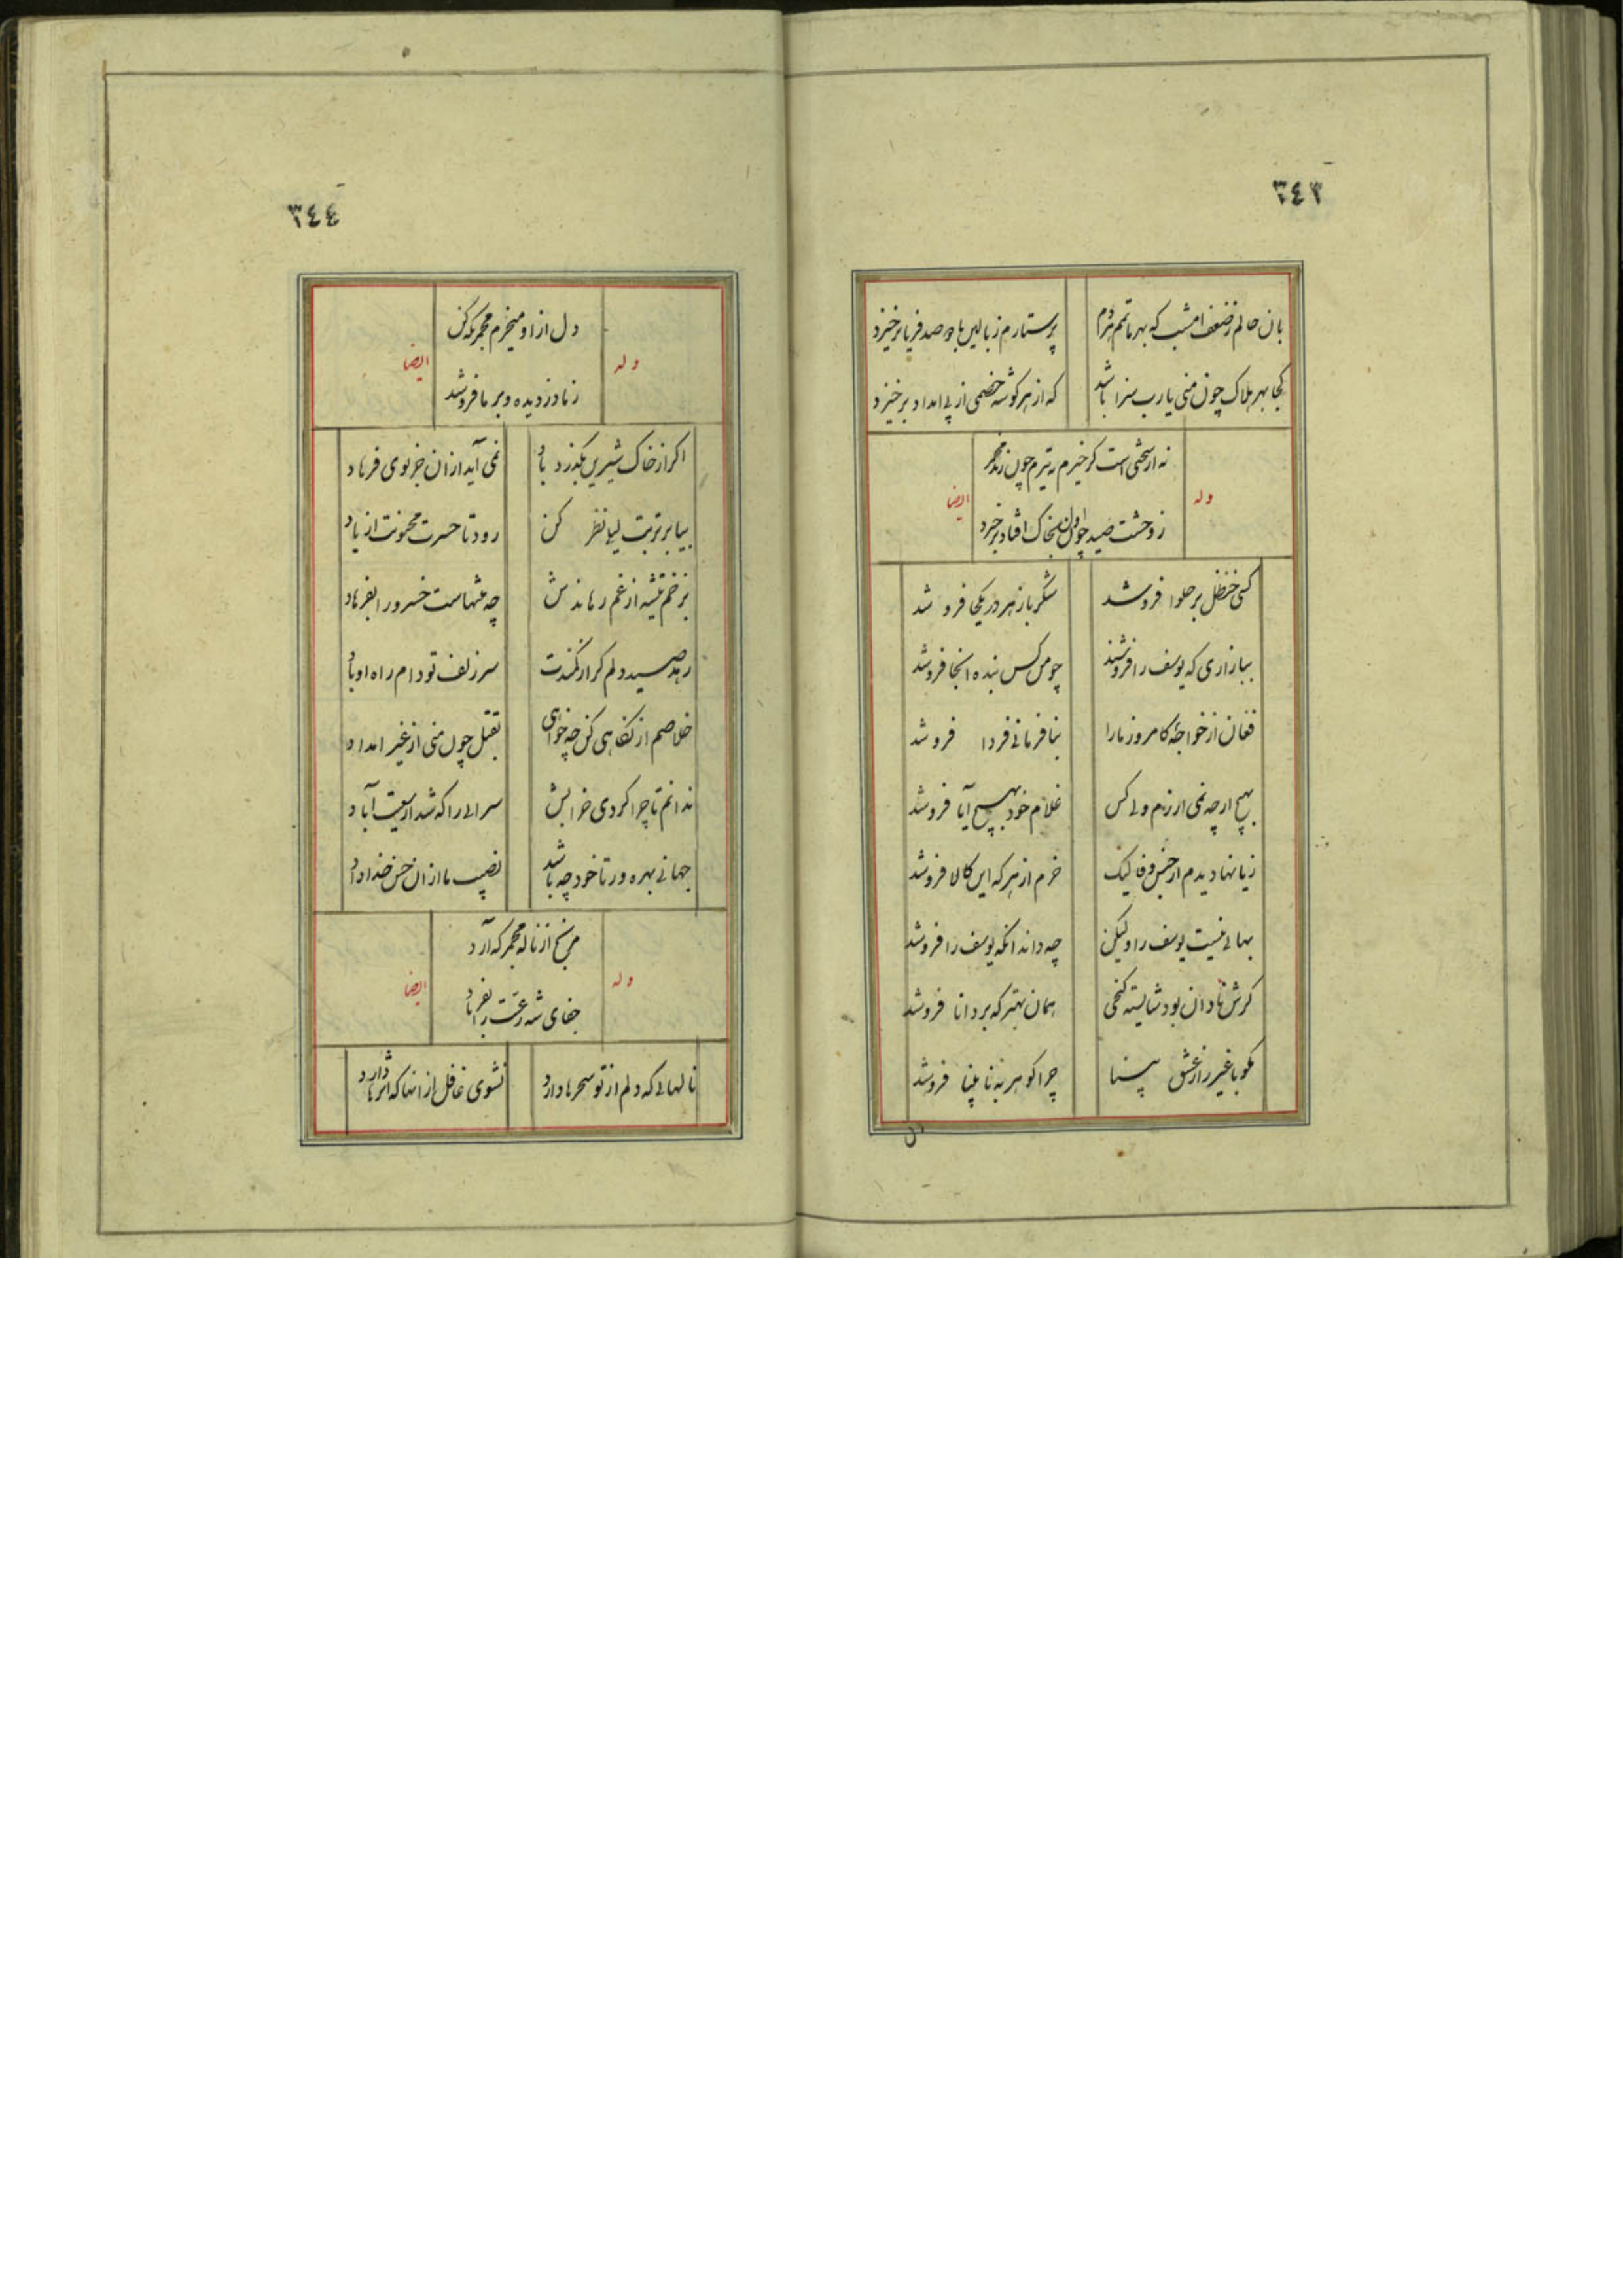 ٣٤٣
بان حالم ز ضعف امشب که بهر ماتمم هر دم
پرستارم ز بالین با دو صد فریاد برخیزد
کجا بهر هلاک چون منی یارب سزا باشد
که از هر گوشه خصمی از پی امداد برخیزد
نه از سختی است گر خیزم ز تیرم چون زند مجمر
وله
ایضا
ز وحشت صید چون اول بخاک افتاد برخیزد
کسی حنظل بر حلوا فروشد
شکر با زهر در یکجا فروشد
ببازاری که یوسف را فروشند
چو من کس بنده انجا فروشد
فغان از خواجهٔ کامروز ما را
بنافرمانی فردا فروشد
بهیچ ارچه نمی ارزم ولی کس
غلام خود بهیچ آیا فروشد
زیانها دیدم از جنس وفا لیک
خرم از هر که این کالا فروشد
بهائی نیست یوسف را ولیکن
چه داند انکه یوسف را فروشد
کرش نادان بود شایسته گنجی
همان بهتر که بر دانا فروشد
مکو با غیر راز عشق پنها
چرا گوهر به نابینا فروشد
٣٤٤
دل از او میخرم مجمر که کن
وله
ایضا
ز ما دزدیده و بر ما فروشد
اگر از خاک شیرین بگذرد باد
نمی آید ازان جز بوی فرهاد
بیا بر تربت لیلی نظر کن
رود تا حسرت مجنونت از یاد
بزخم تیشه از غم رهاندش
چه منتهاست خسرو را بفرهاد
رهد صید دلم گر از کمندت
سر زلف تو دام راه او باد
خلاصم از نگاهی کن چه خواهی
بقتل چون منی از غیر امداد
ندانم تا چرا کردی خرابش
سرائی را که شد از سعیت آباد
جهانی بهره ور تا خود چه باشد
نصیب ما ازان حسن خداداد
مرنج از ناله مجمر که آرد
وله
ایضا
جفای شه رعیت را بفریاد
نالهائی که دلم از تو سحرها دارد
نشوی غافل از انها که اثرها دارد